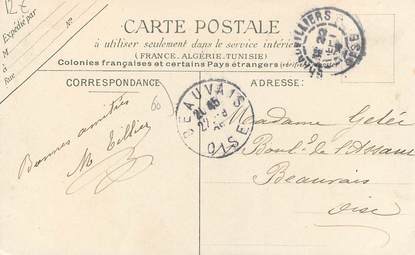 12€
Expédié par
M
à
Rue
N°
CARTE POSTALE
à utiliser seulement dans le service intérieur
(FRANCE, ALGÉRIE, TUNISIE)
Colonies françaises et certains Pays étrangers
CORRESPONDANCE
ADRESSE:
60
BEAUVAIS
OISE
Bonnes amitiés
M Tillier
Madame Gelée
Boul. de l'Assaut
Beauvais
Oise